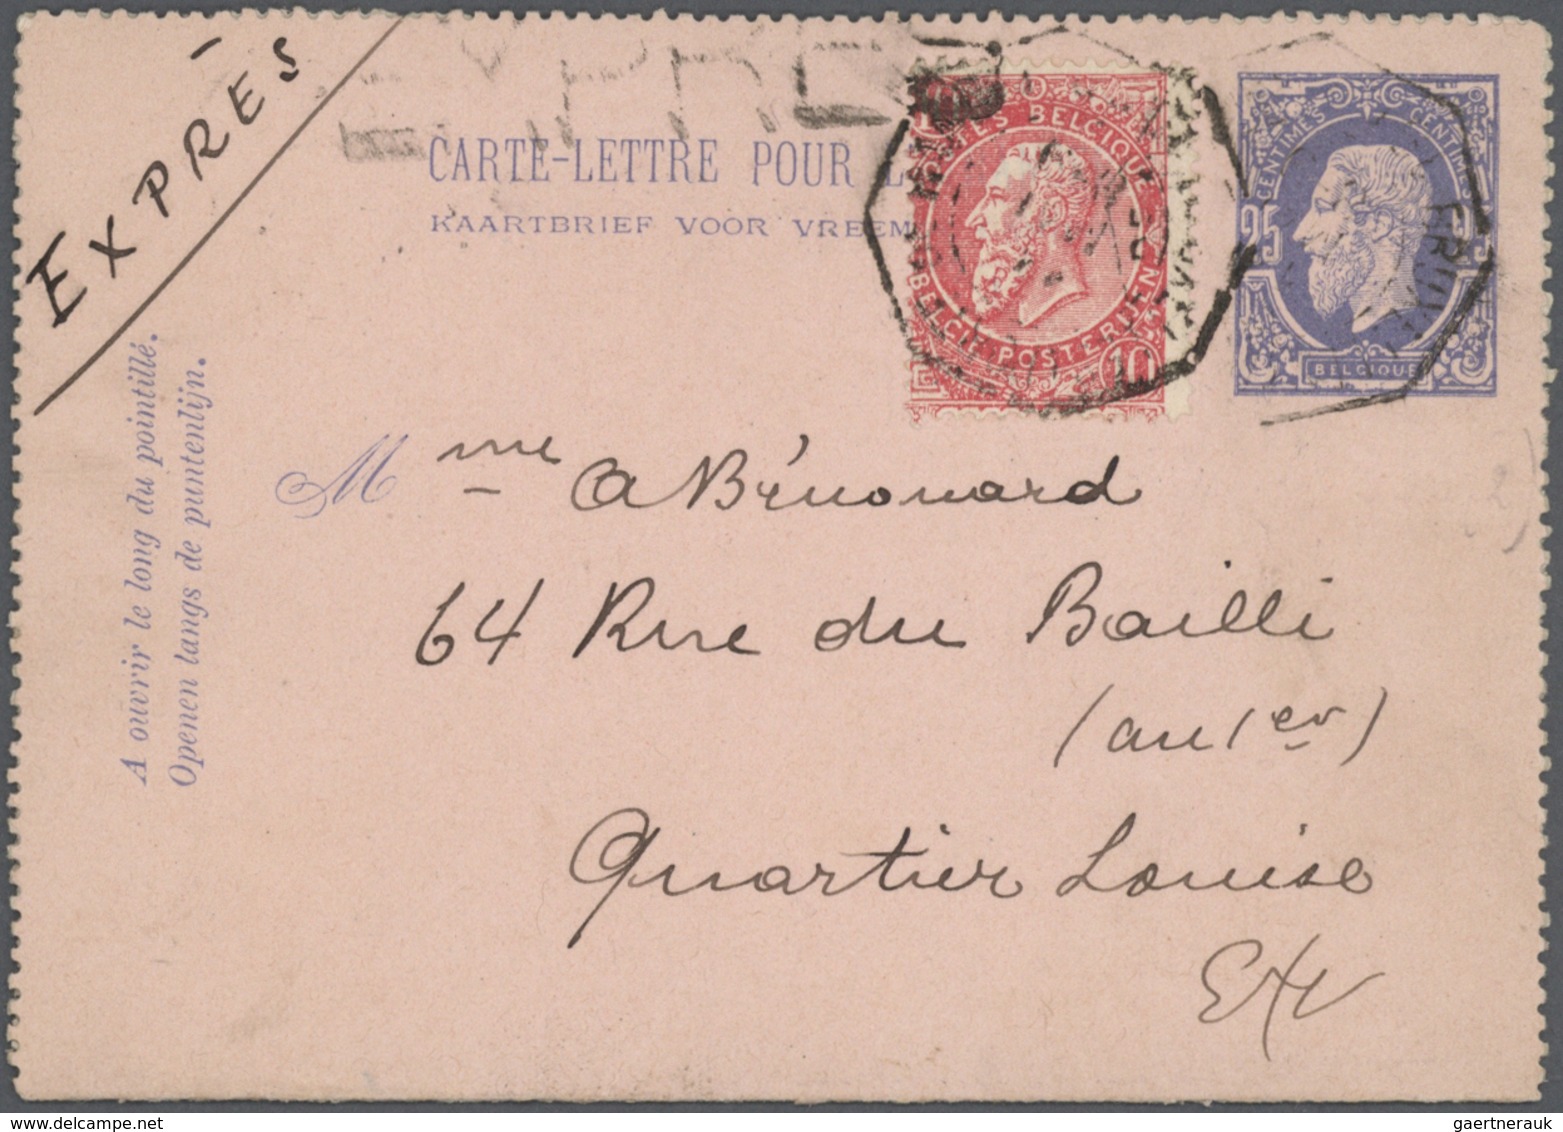 EXPRÈS
EXPRE
CARTE-LETTRE POUR L
KAARTBRIEF VOOR VREEM
POSTES BELGIQUE
BELGIE POSTERIJEN
10
CENTIMES CENTIMES
25
BELGIQUE
A ouvrir le long du pointillé.
Openen langs de puntenlijn.
Mme A Bénouard
64 Rue du Bailli
(au 1er)
Quartier Louise
gaertnerauk @ delcampe.net